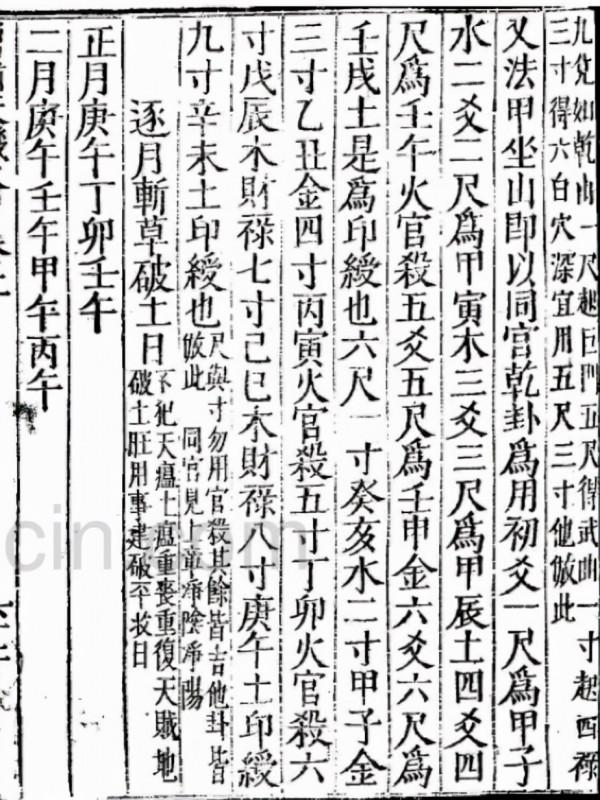 九兌如乾山一尺起巨門五尺得武曲一寸起四祿
三寸得六白穴深宜用五尺三寸他倣此
又法甲坐山即以同宮乾卦爲用初爻一尺爲甲子
水二爻二尺爲甲寅木三爻三尺爲甲辰土四爻四
尺爲壬午火官殺五爻五尺爲壬申金六爻六尺爲
壬戌土是爲印綬也六尺一寸癸亥水二寸甲子金
三寸乙丑金四寸丙寅火官殺五寸丁卯火官殺六
寸戊辰木財祿七寸己巳木財祿八寸庚午土印綬
九寸辛未土印綬也尺與寸勿用官殺其餘皆吉他卦皆
倣此 同宮見上章淨陰淨陽
逐月斬草破土日不犯天瘟土瘟重喪重復天賊地
破土旺用事建破平收日
正月庚午丁卯壬午
二月庚午壬午甲午丙午
cin.com